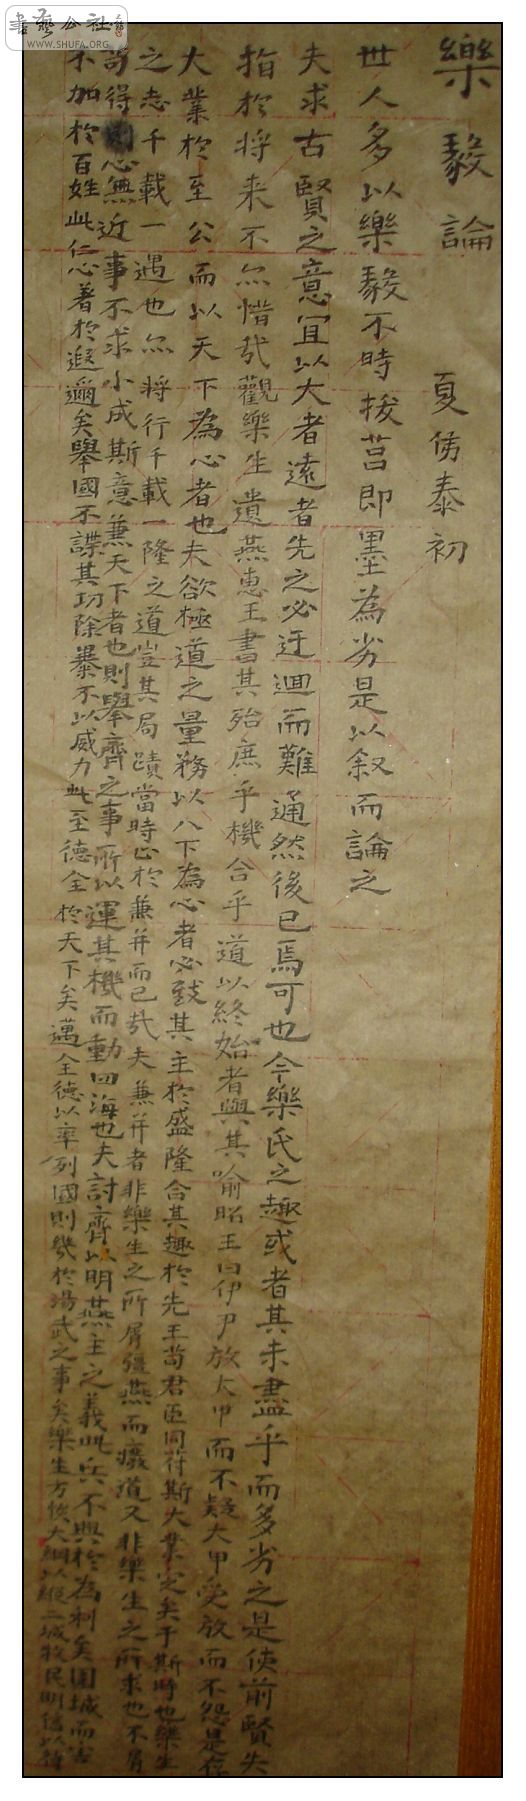 書藝公社
WWW.SHUFA.ORG
樂毅論 夏侯泰初
世人多以樂毅不時拔莒即墨為劣是以叙而論之
夫求古賢之意宜以大者遠者先之必迂迴而難通然後已焉可也今樂氏之趣或者其未盡乎而多劣之是使前賢失
指於将来不亦惜哉觀樂生遺燕惠王書其殆庶乎機合乎道以終始者與其喻昭王曰伊尹放大甲而不疑大甲受放而不怨是存
大業於至公而以天下為心者也夫欲極道之量務以八下為心者必致其主於盛隆合其趣於先王苟君臣同符斯大業定矣于斯時也樂生
之志千載一遇也亦将行千載一隆之道豈其局蹟當時止於兼并而已哉夫兼并者非樂生之所屑彊燕而癈道又非樂生之所求也不屑
苟得心無近事不求小成斯意兼天下者也則舉齊之事所以運其機而動四海也夫討齊以明燕主之義此兵不興於為利矣圍城而害
不加於百姓此仁心著於遐邇矣舉國不謀其功除暴不以威力此至德全於天下矣邁全德以率列國則幾於湯武之事矣樂生方恢大綱以縱二城牧民明信以待